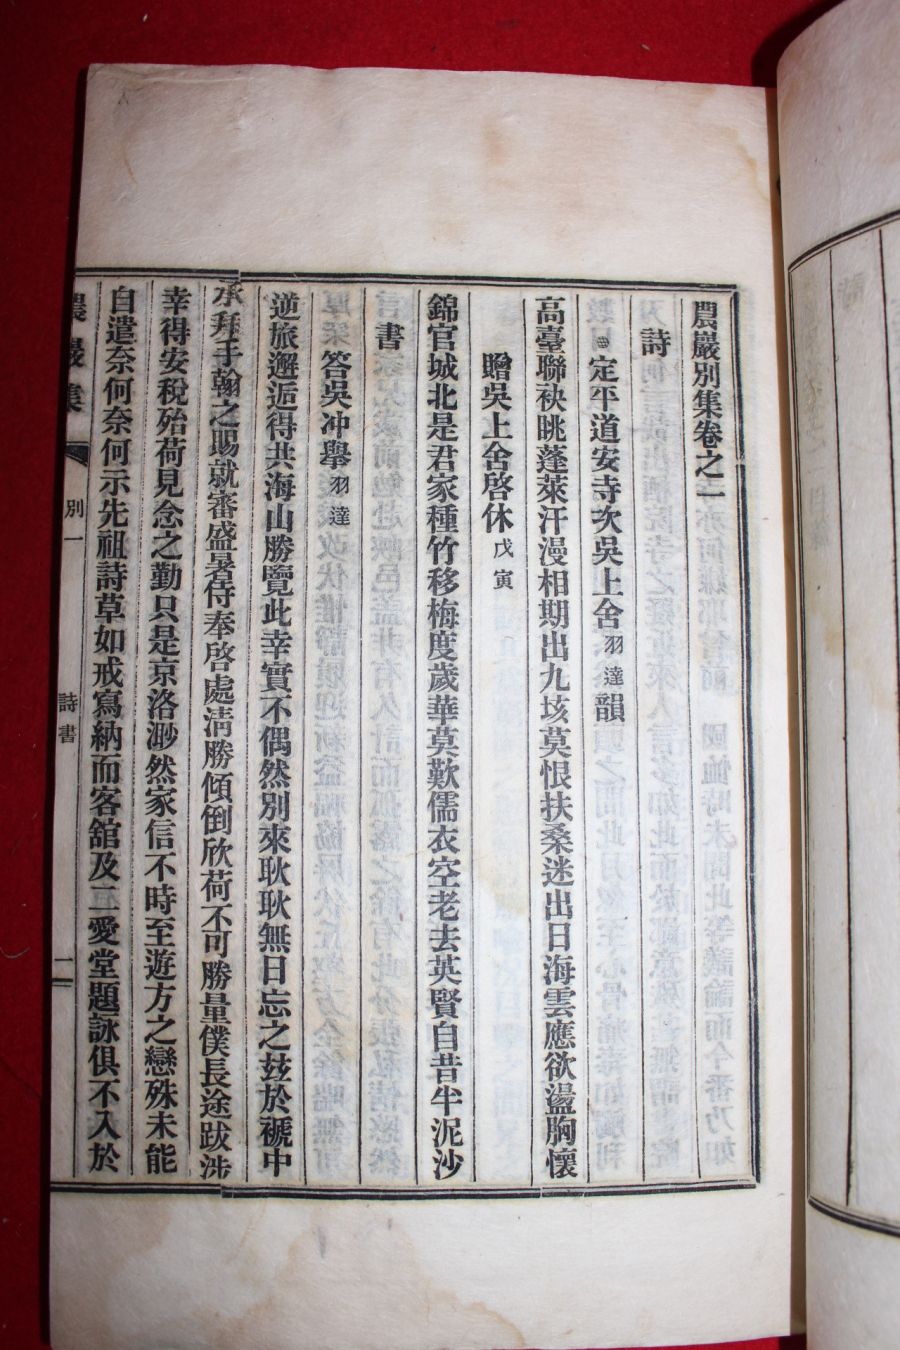 農巖別集卷之一
詩
定平道安寺次吳上舍羽達韻
高臺聯袂眺蓬萊汗漫相期出九垓莫恨扶桑迷出日海雲應欲盪胸懷
贈吳上舍啓休戊寅
錦官城北是君家種竹移梅度歲華莫歎儒衣空老去英賢自昔半泥沙
書
答吳冲擧羽達
逆旅邂逅得共海山勝覽此幸實不偶然別來耿耿無日忘之玆於褫中
承拜手翰之賜就審盛暑侍奉啓處淸勝傾倒欣荷不可勝量僕長途跋涉
幸得安稅殆荷見念之勤只是京洛渺然家信不時至遊方之戀殊未能
自遣奈何奈何示先祖詩草如戒寫納而客舘及二愛堂題詠俱不入於
農巖集
別一
詩書
一